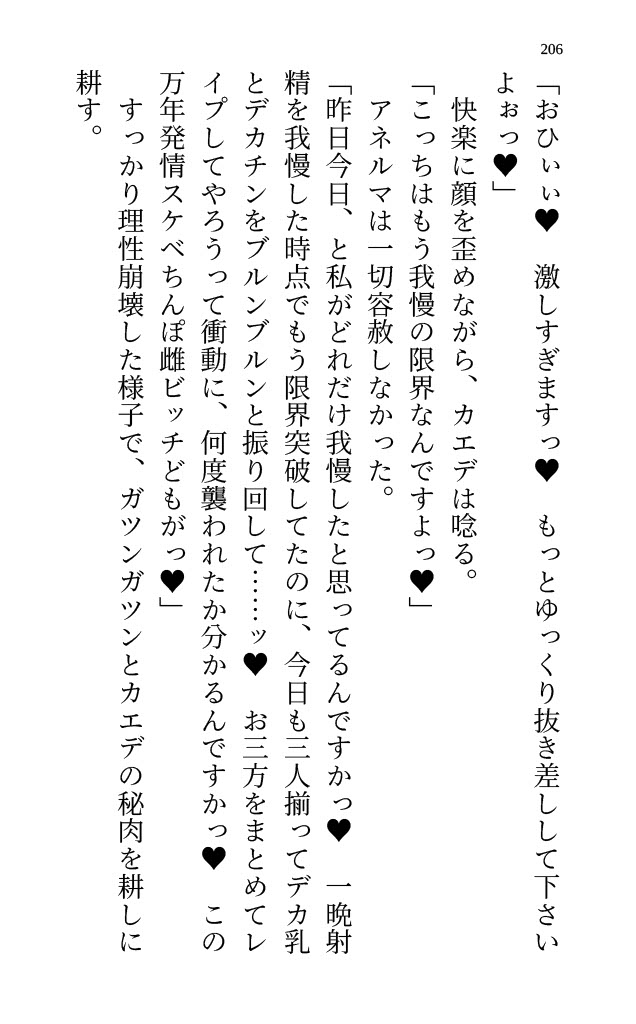 206
「おひぃぃ♥　激しすぎますっ♥　もっとゆっくり抜き差しして下さい
よぉっ♥」
　快楽に顔を歪めながら、カエデは唸る。
「こっちはもう我慢の限界なんですよっ♥」
　アネルマは一切容赦しなかった。
「昨日今日、と私がどれだけ我慢したと思ってるんですかっ♥　一晩射
精を我慢した時点でもう限界突破してたのに、今日も三人揃ってデカ乳
とデカチンをブルンブルンと振り回して……ッ♥　お三方をまとめてレ
イプしてやろうって衝動に、何度襲われたか分かるんですかっ♥　この
万年発情スケベちんぽ雌ビッチどもがっ♥」
　すっかり理性崩壊した様子で、ガツンガツンとカエデの秘肉を耕しに
耕す。